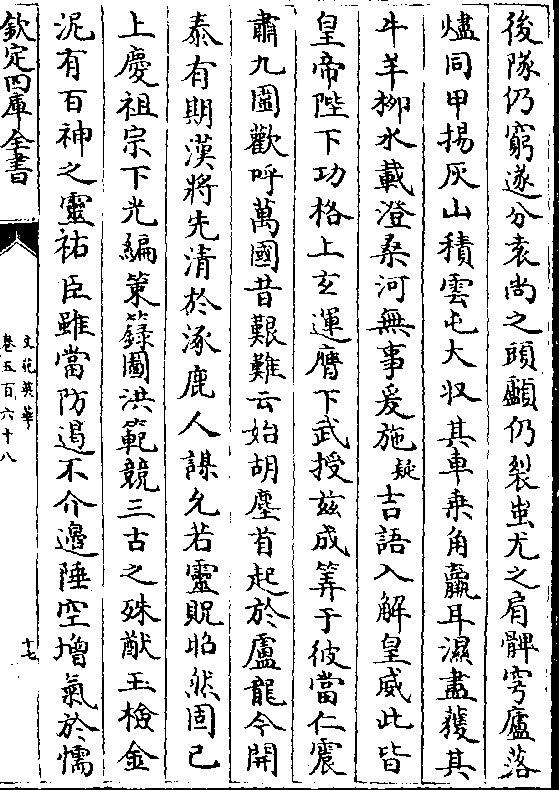 後隊仍窮遂分袁尚之頭顱仍裂蚩尤之肩髀穹廬落
燼同甲揚灰山積雲屯大収其車乗角羸耳濕盡獲其
牛羊栁水載澄桑河無事爰施疑吉語入解皇威此皆
皇帝陛下功格上𤣥運膺下武授兹成筭于彼當仁震
肅九圍歡呼萬國昔艱難云始胡塵首起於盧龍今開
泰有期漢將先清於涿鹿人謀允若靈貺昭然固已
上慶祖宗下光編策籙圖洪範競三古之殊猷玉檢金
泥有百神之靈祐臣雖當防遏不介邊陲空增氣於懦
欽定四庫全書
文苑英華
卷五百六十八
十七